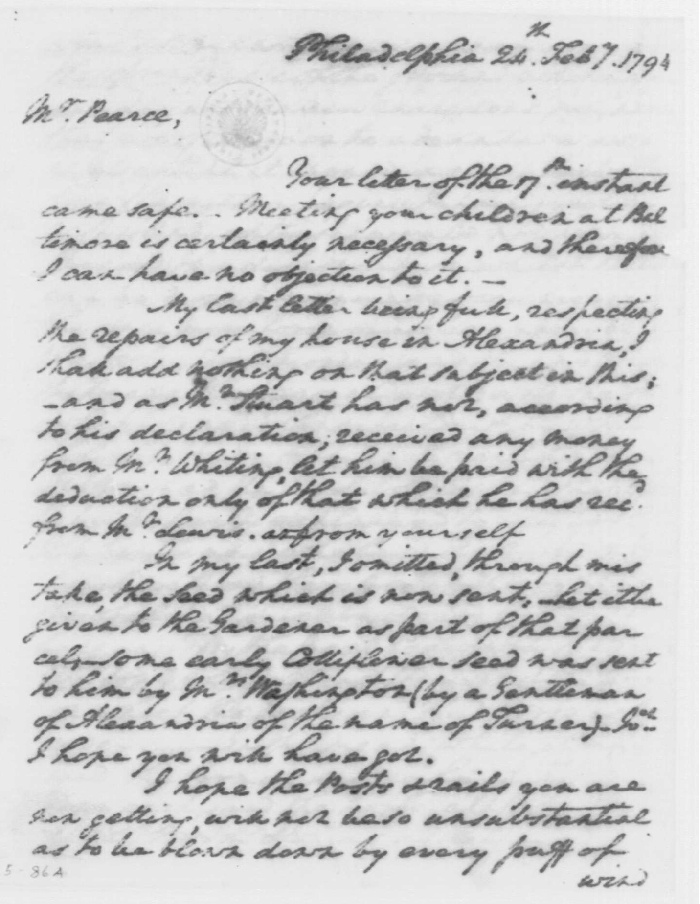 Philadelphia 24th Feby. 1794
Mr. Pearce,
Your letter of the 17th instant
came safe. Meeting your children at Bal
timore is certainly necessary, and therefore
I can have no objection to it. —
My last letter being full, respecting
the repairs of my house in Alexandria, I
shall add nothing on that subject in this;
—and as Mr. Stuart has not, according
to his declaration, received any money
from Mr. Whiting, let him be paid with the
deduction only of that which he has recd.
from Mr. Lewis. or from yourself
In my last, I omitted, through mis
take, the seed which is now sent. let it be
given to the Gardener as part of that par
cel,—some early Colliflower seed was sent
to him by Mrs. Washington (by a Gentleman
of Alexandria of the name of Turner)
I hope you will have got.
I hope the Posts & rails you are
now getting, will not be so unsubstantial
as to be blown down by every puff of
wind
5-86A